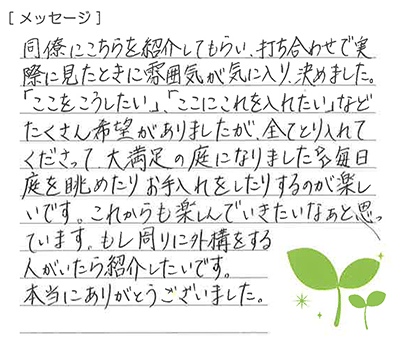 [メッセージ]
同僚にこちらを紹介してもらい、打ち合わせで実
際に見たときに雰囲気が気に入り、決めました。
「ここをこうしたい」、「ここにこれを入れたい」など
たくさん希望がありましたが、全てとり入れて
くださって、大満足の庭になりました
毎日
庭を眺めたりお手入れをしたりするのが楽し
いです。これからも楽しんでいきたいなぁと思っ
ています。もし周りに外構をする
人がいたら紹介したいです。
本当にありがとうございました。